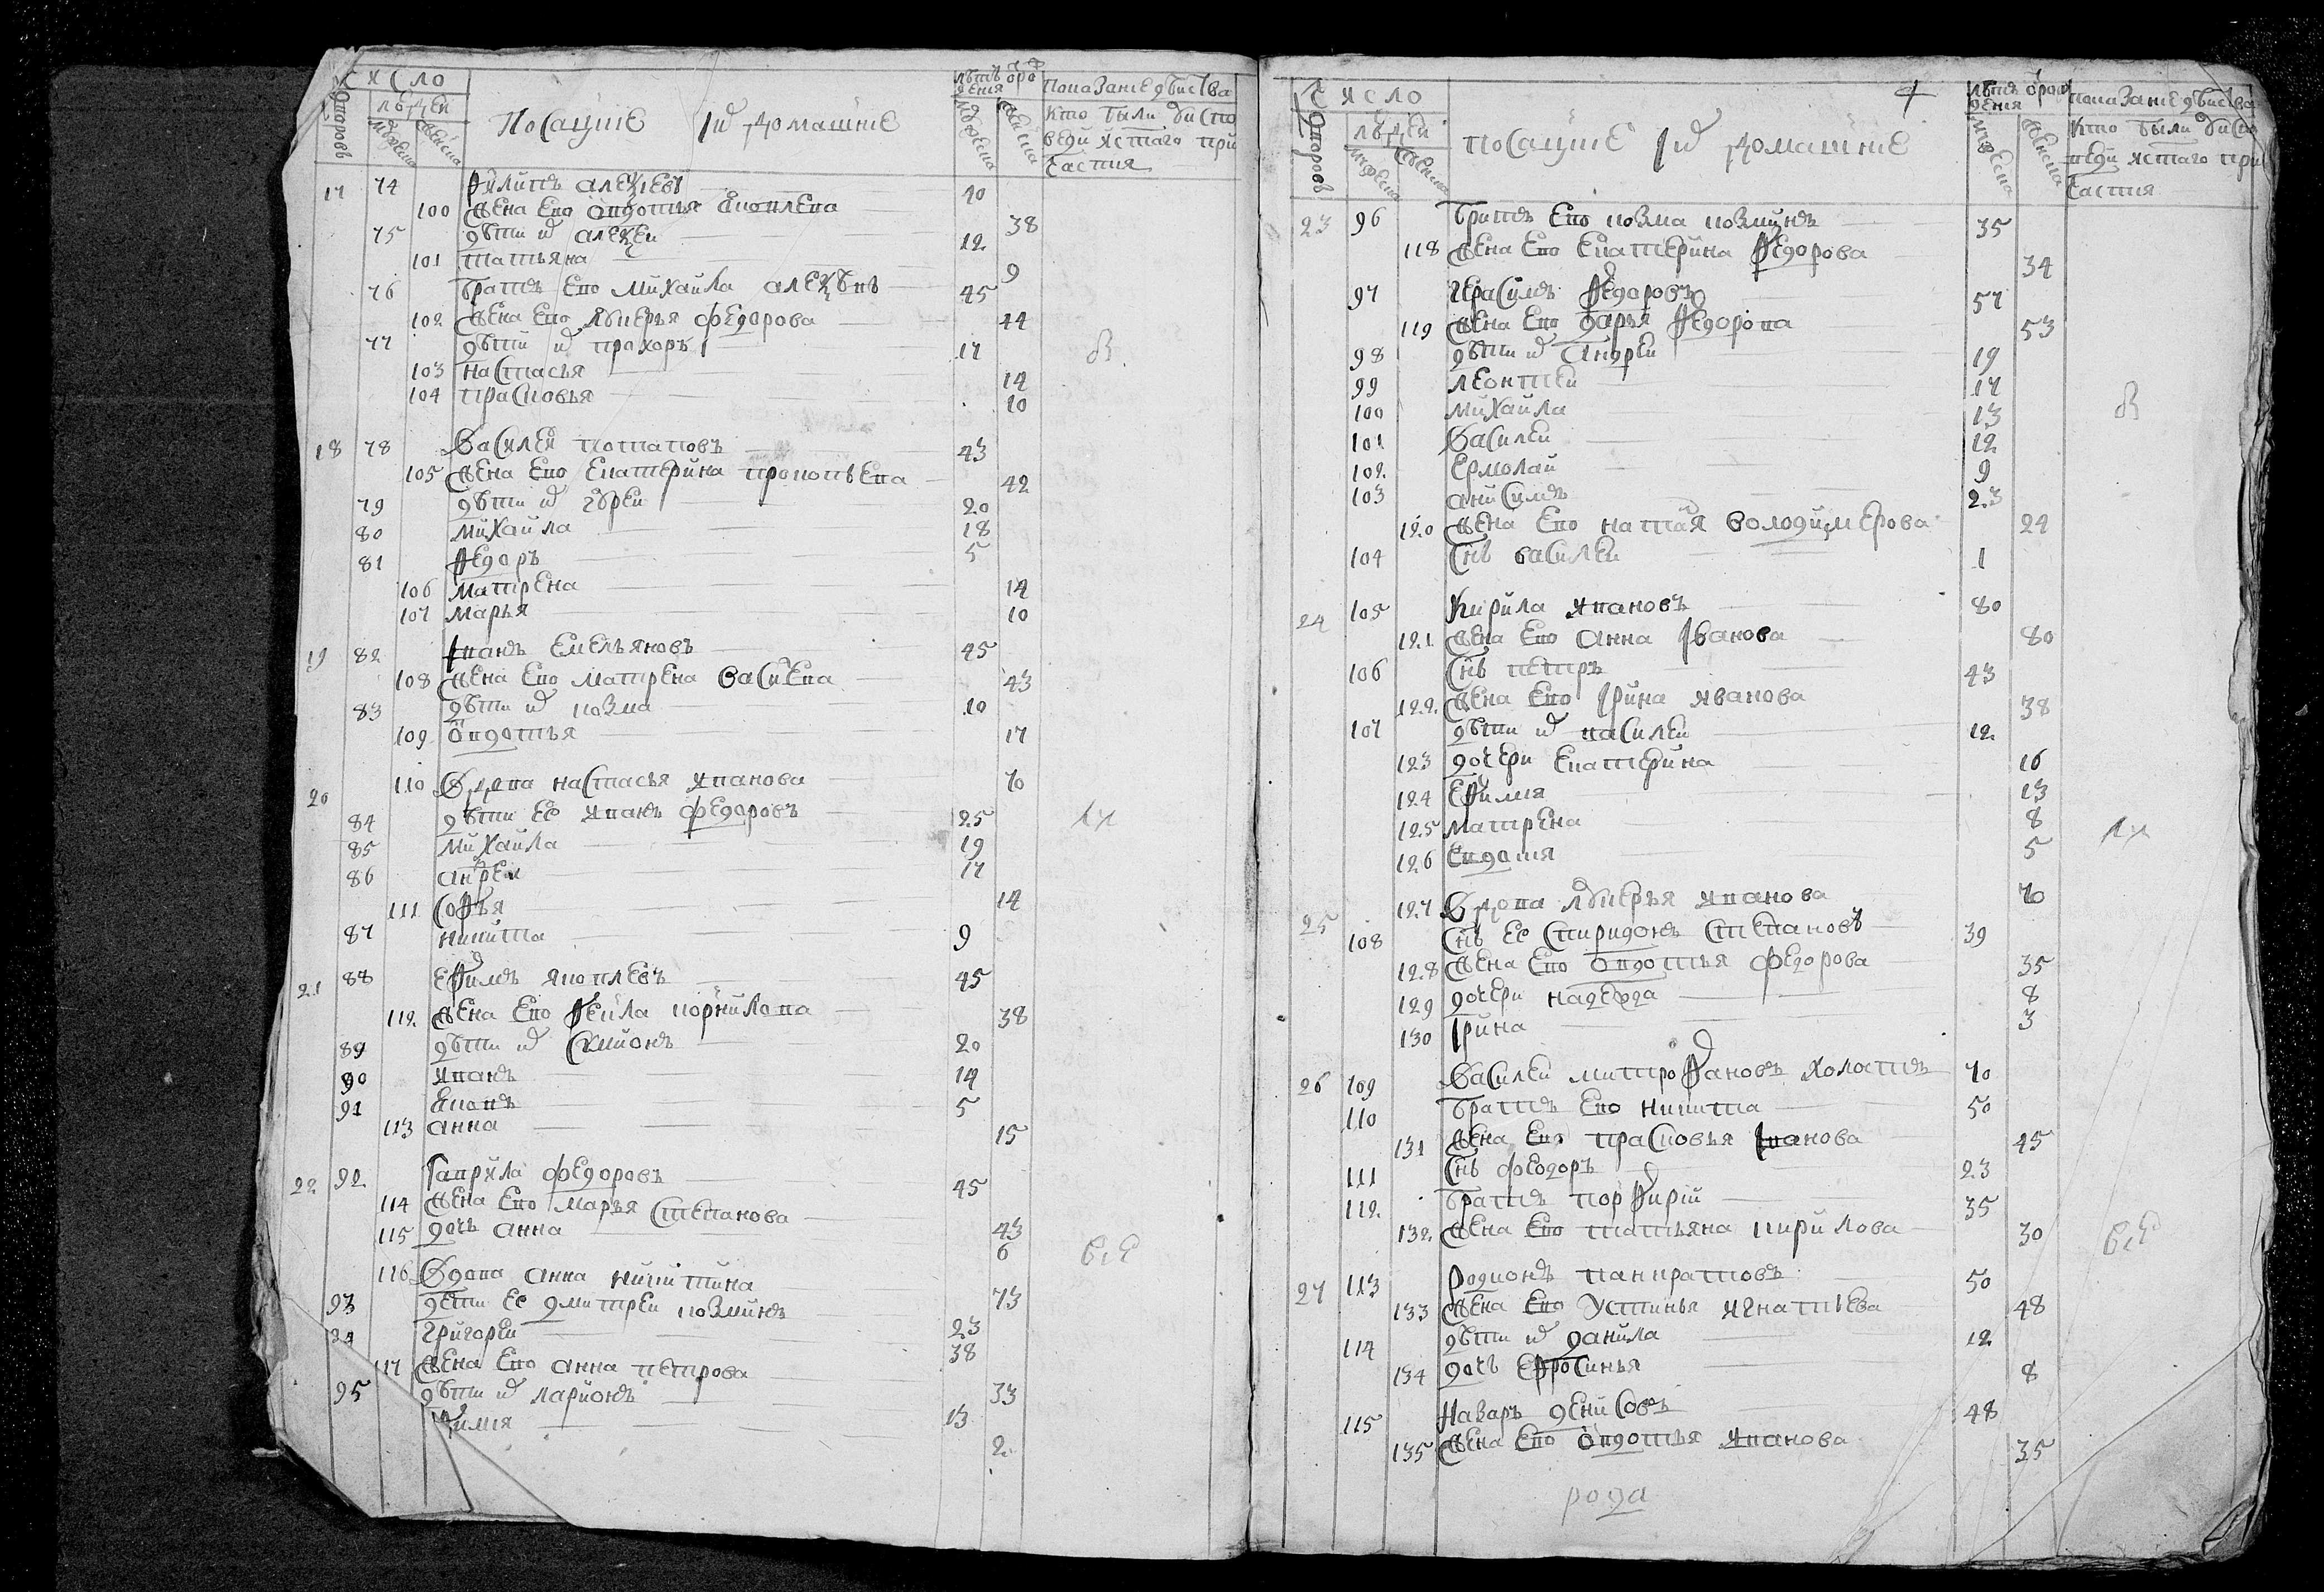 Число
людей
дворовъ
мужеска
женска
Посацкие I ихъ домашние
лѣтъ от рож
дения
мужеска
женска
показание дѣйства
кто были въ испо
веди и стаго при
частия
17 74 Филипъ Алеѯіевъ 40
100 жена ево Овдотья Яковлева 38
75 дѣти ихъ Алеѯеи 12
101 татьяна 9
76 братъ ево михаила Алеѯѣвъ 45
102 жена ево Лукерья федорова 44
77 дѣти ихъ прохоръ 17
103 настасья 14
104 прасковья 10
В
18 78 Василеи потаповъ 43
105 жена ево Екатерина прокопьева 42
79 дѣти ихъ 20
80 михаила 18
81 Федоръ 5
106 матрена 14
107 марья 10
19 82 Iванъ Емельяновъ 45
108 жена ево матрена васильева 43
83 дѣти ихъ козма 10
109 Овдотья 17
20 110 Вдова настасья иванова 70
84 дѣти ее иванъ федоровъ 25
85 михаила 19
86 андреи 17
111 софья 14
87 никита 9
21 88 Ефимъ яковлевъ 45
112 жена ево Фекла корнилова 38
89 дѣти ихъ Симионъ 20
90 иванъ 14
91 5
113 анна 15
22 92 Гаврила федоровъ 45
114 жена ево марья степанова 43
115 дочь анна 6
116 Вдова анна никитина 73
93 дети ее дмитреи козминъ 23
94 григореи 38
117 жена ево анна петрова 33
95 дѣти ихъ ларионъ 13
Фимия 2
Число
людей
дворовъ
мужеска
женска
посацкие I ихъ домашние
лѣтъ от рож
дения
мужеска
женска
показание дѣйства
кто были въ испо
веди и стаго при
частия
23 96 братъ ево козма козминъ 35
118 жена ево Екатерина Федорова 34
97 герасимъ Федоровъ 57
119 жена ево дарья Федорова 53
98 дѣти ихъ андреи 19
99 леонтеи 17
100 михаила 13
101 Василеи 12
102 Ермолаи 9
103 анисимъ 23
120 жена ево володимерова 24
104 снъ василеи 1
В
24 105 Кирила ивановъ 80
121 жена ево анна Iванова 80
106 снъ петръ 43
122 жена ево Iрина иванова 38
107 дѣти ихъ василеи 12
123 дочери Екатерина 16
124 Ефимия 13
125 матрена 8
126 Евдотия 5
25 127 Вдова лукерья иванова 70
108 снъ ее спиридонъ степановъ 39
128 жена ево Овдотья федорова 35
129 дочери надежда 8
130 Iрина 3
26 109 Василеи митрофановъ холоповъ 70
110 братъ ево никита 50
131 жена ево прасковья Iванова 45
111 снъ феодоръ 23
112 братъ порфирiи 35
132 жена ево татьяна кирилова 30
27 113 родионъ панкратовъ 50
133 жена ево устинья игнатьева 48
114 дѣти ихъ данила 12
134 дочь Ефросинья 8
115 Назаръ денисовъ 48
135 жена ево Овдотья иванова 35
рода